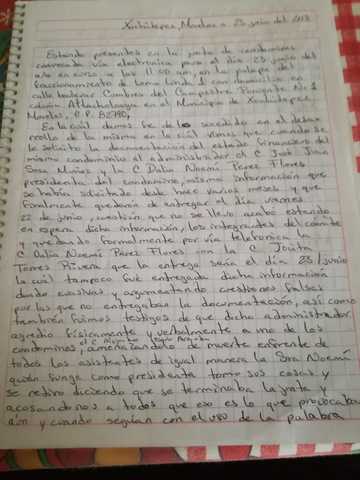 Xochitepec, Morelos a 23 junio del 2018
Estando presentes en la junta de condominos
convocada vía electronica para el día 23 junio del
año en curso a las 11:00 am, en la palapa del
fraccionamiento de Loma Linda 1 con domicilio en
calle boulevar Cumbres del Campestre Poniente Nº 1
colonia Atlacholoaya en el Municipio de Xochitepec
Morelos, C.P. 62790,
En la cuál damos fe de lo sucedido en el desa-
rrollo de la misma en la cuál vemos que cuando se
le solicito la documentación del estado financiero del
mismo condominio al administrador el C José Juan
Sosa Muñoz y la C Dalia Noemi Pérez Flores
presidenta del condominio, misma información que
se había solicitado desde hace varios meses y que
finalmente quedarón de entregar el día viernes
22 de junio, cuestión que no se llevo acabó estando
en espera dicha información, los integrantes del comite
y quedando formalmente por vía telefonica la
C Dalia Noemí Pérez Flores con la C. Jovita
Torres Rivera que la entrega sería el día 23/junio
la cuál tampoco fué entregada dicha información
dando evasivas y argumentando cuestiones falsas
por las que no entregaban la documentación, así como
también fuimos testigos de que dicho administrador
agredio físicamente y verbalmente a uno de los
condominos, el C Alejandro amenazandolo de muerte enfrente de
todos los asistentes de igual manera la Sra Noemí
quién funge como presidente tomo sus cosas y
se retiro diciendo que se terminaba la junta y
acosandonos a todos que eso es lo que provocaba
aún y cuando seguían con el uso de la palabra